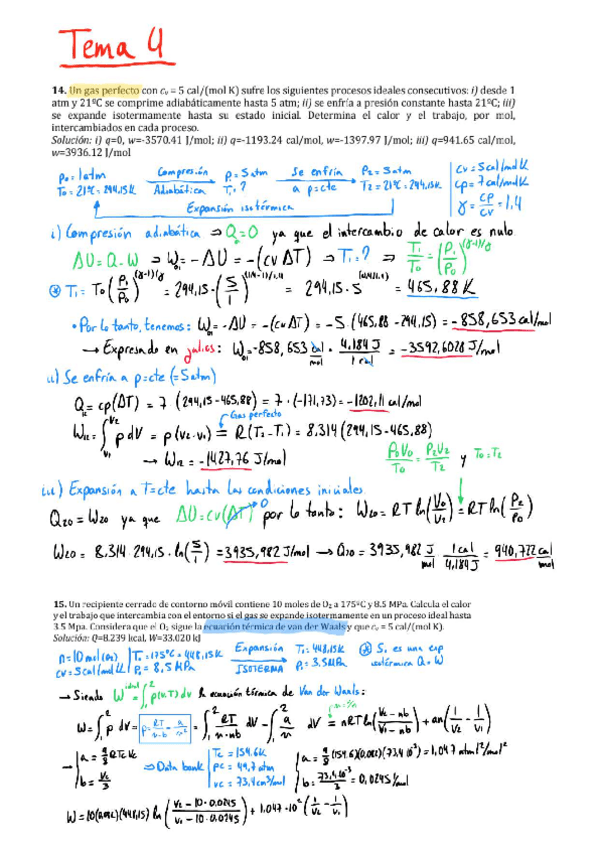 Tema 4
14. Un gas perfecto con cv = 5 cal/(mol K) sufre los siguientes procesos ideales consecutivos: i) desde 1
atm y 21ºC se comprime adiabáticamente hasta 5 atm; ii) se enfría a presión constante hasta 21ºC; iii)
se expande isotermamente hasta su estado inicial. Determina el calor y el trabajo, por mol,
intercambiados en cada proceso.
Solución: i) q=0, w=-3570.41 J/mol; ii) q=-1193.24 cal/mol, w=-1397.97 J/mol; iii) q=941.65 cal/mol,
w=3936.12 J/mol
p₀ = 1 atm Compresión p₁ = 5 atm Se enfría P₂ = 5 atm cv = 5 cal/mol K
T₀ = 21ºC = 294,15K Adiabática T₁ = ? a p=cte T₂ = 21ºC = 294,15K cp = 7 cal/mol K
Expansión isotérmica γ = cp/cv = 1,4
i) Compresión adiabática ⇒ Q=0 ya que el intercambio de calor es nulo
ΔU = Q - W ⇒ W₀₁ = -ΔU = -(cv ΔT) ⇒ T₁ = ? ⇒ T₁/T₀ = (P₁/P₀)^((γ-1)/γ)
⊛ T₁ = T₀ (P₁/P₀)^((γ-1)/γ) = 294,15 · (5/1)^((1,4-1)/1,4) = 294,15 · 5 = 465,88 K
• Por lo tanto, tenemos: W₀₁ = -ΔU = -(cv ΔT) = -5 · (465,88 - 294,15) = -858,653 cal/mol
→ Expresado en julios: W₀₁ = -858,653 cal/mol · 4,184 J/1 cal = -3592,6028 J/mol
ii) Se enfría a p=cte (=5atm)
Q = cp(ΔT) = 7 (294,15 - 465,88) = 7 · (-171,73) = -1202,11 cal/mol
Gas perfecto
W₁₂ = ∫ p dV = p (v₂ - v₁) = R(T₂ - T₁) = 8.314 (294,15 - 465,88)
→ W₁₂ = -1427,76 J/mol P₀V₀/T₀ = P₂V₂/T₂ y T₀ = T₂
iii) Expansión a T=cte hasta las condiciones iniciales
Q₂₀ = W₂₀ ya que ΔU = cv(ΔT) 0 por lo tanto: W₂₀ = RT ln(V₀/V₂) = RT ln(P₂/P₀)
W₂₀ = 8.314 · 294,15 · ln(5/1) = 3935,982 J/mol → Q₂₀ = 3935,982 J/mol · 1 cal/4,184 J = 940,722 cal/mol
15. Un recipiente cerrado de contorno móvil contiene 10 moles de O₂ a 175ºC y 8.5 MPa. Calcula el calor
y el trabajo que intercambia con el entorno si el gas se expande isotermamente en un proceso ideal hasta
3.5 Mpa. Considera que el O₂ sigue la ecuación térmica de van der Waals y que cv = 5 cal/(mol K).
Solución: Q=8.239 kcal, W=33.020 kJ
n = 10 mol (O₂) T₁ = 175ºC = 448,15K Expansión T₂ = 448,15K ⊛ Si es una exp
cv = 5 cal/mol K P₁ = 8,5 MPa ISOTERMA P₂ = 3,5 MPa isotérmica Q = W
→ Siendo W^ideal = ∫ p(v,T) dv la ecuación térmica de Van der Waals:
W = ∫ p dV = p = RT/v-b - a/v² = ∫ RT/v-nb dV - ∫ a/v² dV = nRT ln(V₂ - nb/V₁ - nb) + an(1/V₂ - 1/V₁)
→ a = 9/8 RTc Vc ⇒ Data bank Tc = 154.6K a = 9/8 (154.6)(0,082)(73,4·10⁻³) = 1,047 atm l²/mol²
b = Vc/3 pc = 49,7 atm b = 73,4·10⁻³/3 = 0,0245 l/mol
vc = 73,4 cm³/mol
W = 10(0,082)(448,15) ln(V₂ - 10·0.0245/V₁ - 10·0.0245) + 1.047·10² (1/V₂ - 1/V₁)